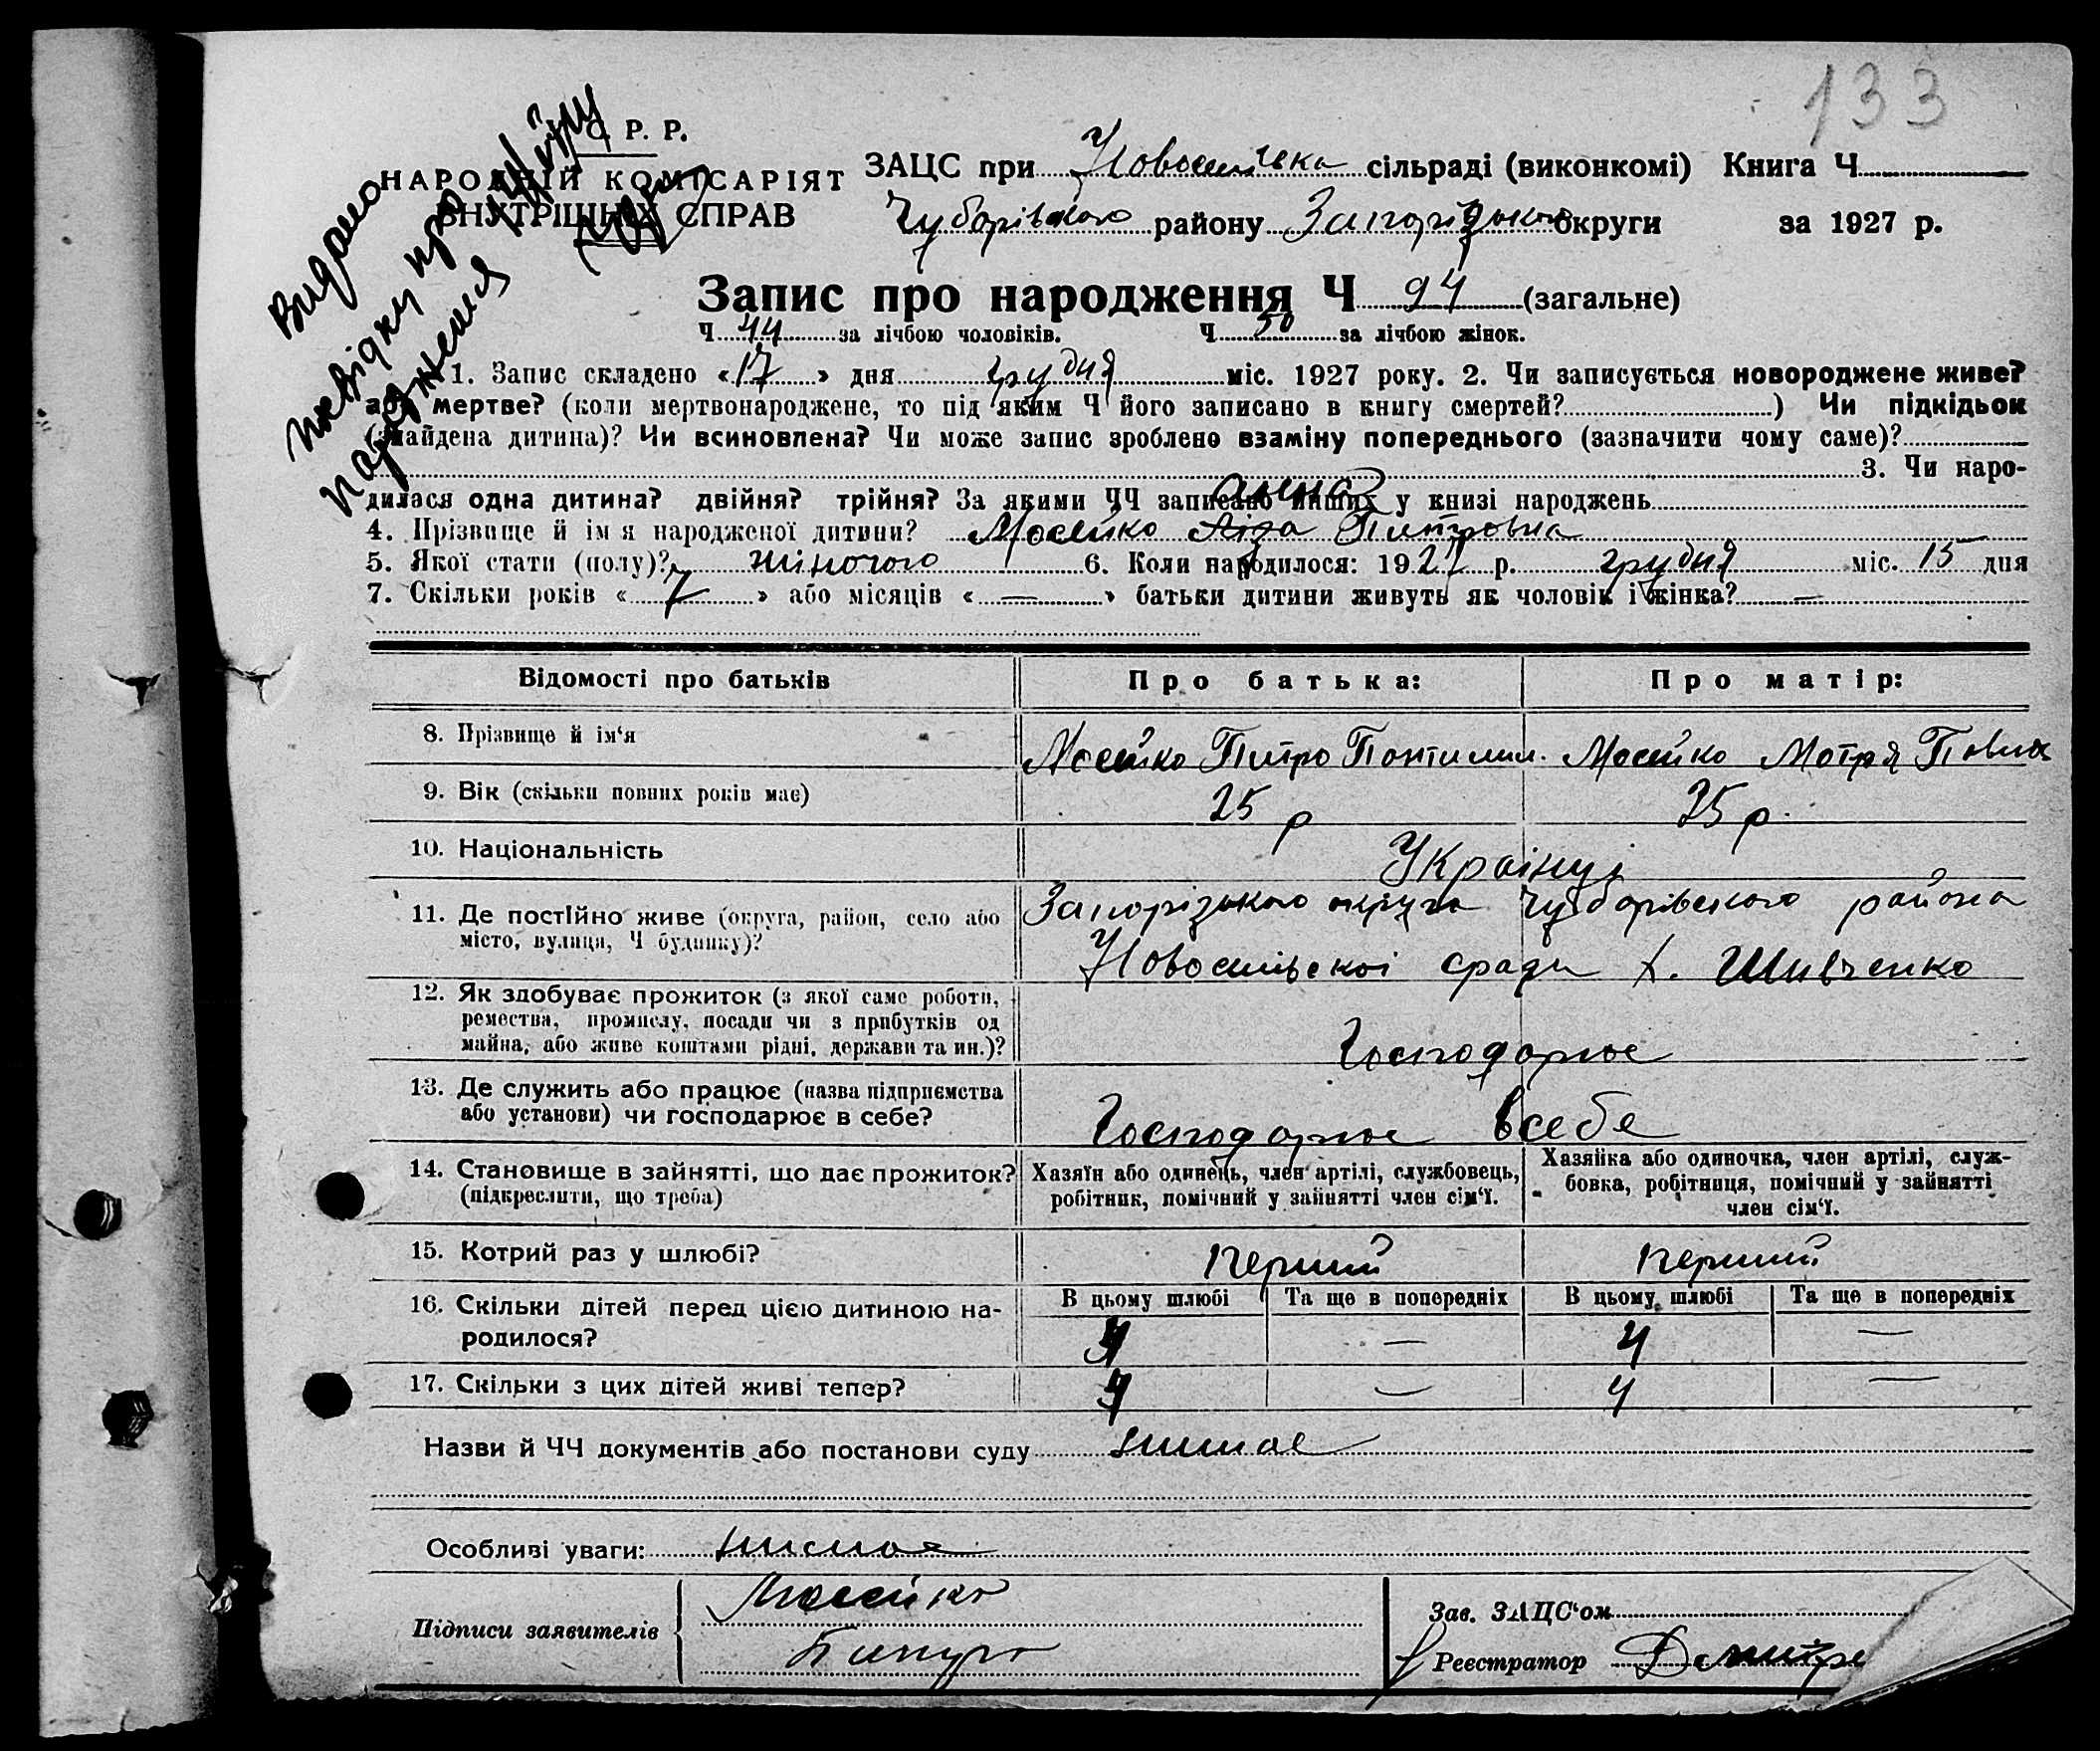 133
С Р. Р.
НАРОДНІЙ КОМІСАРІЯТ
ВНУТРІШНІХ СПРАВ
Видано
посвідку про
народження
ЗАЦС при Новоси сільраді (виконкомі) Книга Ч
Чубарівського району Запорізької округи за 1927 р.
Запис про народження Ч 94 (загальне)
Ч 44 за лічбою чоловіків. Ч 50 за лічбою жінок.
1. Запис складено «17» дня грудня міс. 1927 року. 2. Чи записується новороджене живе?
або мертве? (коли мертвонароджене, то під яким Ч його записано в книгу смертей? ) Чи підкідьок
(знайдена дитина)? Чи всиновлена? Чи може запис зроблено взаміну попереднього (зазначити чому саме)?
3. Чи наро-
дилася одна дитина? двійня? трійня? За якими ЧЧ записано инших у книзі народжень
4. Прізвище й ім я народженої дитини? Мосейко Питровна
5. Якої стати (полу)? жіночого 6. Коли народилося: 1927 р. грудня міс. 15 дня
7. Скільки років «7» або місяців «—» батьки дитини живуть як чоловік і жінка? —
Відомості про батьків Про батька: Про матір:
8. Прізвище й ім‘я Мосейко Питро Мосейко Мотря
9. Вік (скільки повних років має) 25 р 25 р.
10. Національність Українці
11. Де постійно живе (округа, район, село або Запорізького округа Чубарівского района
місто, вулиця, Ч будинку)? сради х. Шивченко
12. Як здобуває прожиток (з якої саме роботи,
ремества, промислу, посади чи з прибутків од
майна, або живе коштами рідні, держави та ин.)? Господарює
13. Де служить або працює (назва підприємства
або установи) чи господарює в себе? Господарює в себе
14. Становище в зайнятті, що дає прожиток? Хазяїн або одинець, член артілі, службовець, Хазяйка або одиночка, член артілі, служ-
(підкреслити, що треба) робітник, помічний у зайнятті член сім‘ї. бовка, робітниця, помічний у зайнятті
член сім‘ї.
15. Котрий раз у шлюбі? перший перший
16. Скільки дітей перед цією дитиною на- В цьому шлюбі Та ще в попередніх В цьому шлюбі Та ще в попередніх
родилося? 4 — 4 —
17. Скільки з цих дітей живі тепер? 4 — 4 —
Назви й ЧЧ документів або постанови суду
Особливі уваги:
Підписи заявителів Мосейко
Зав. ЗАЦС‘ом
Реєстратор